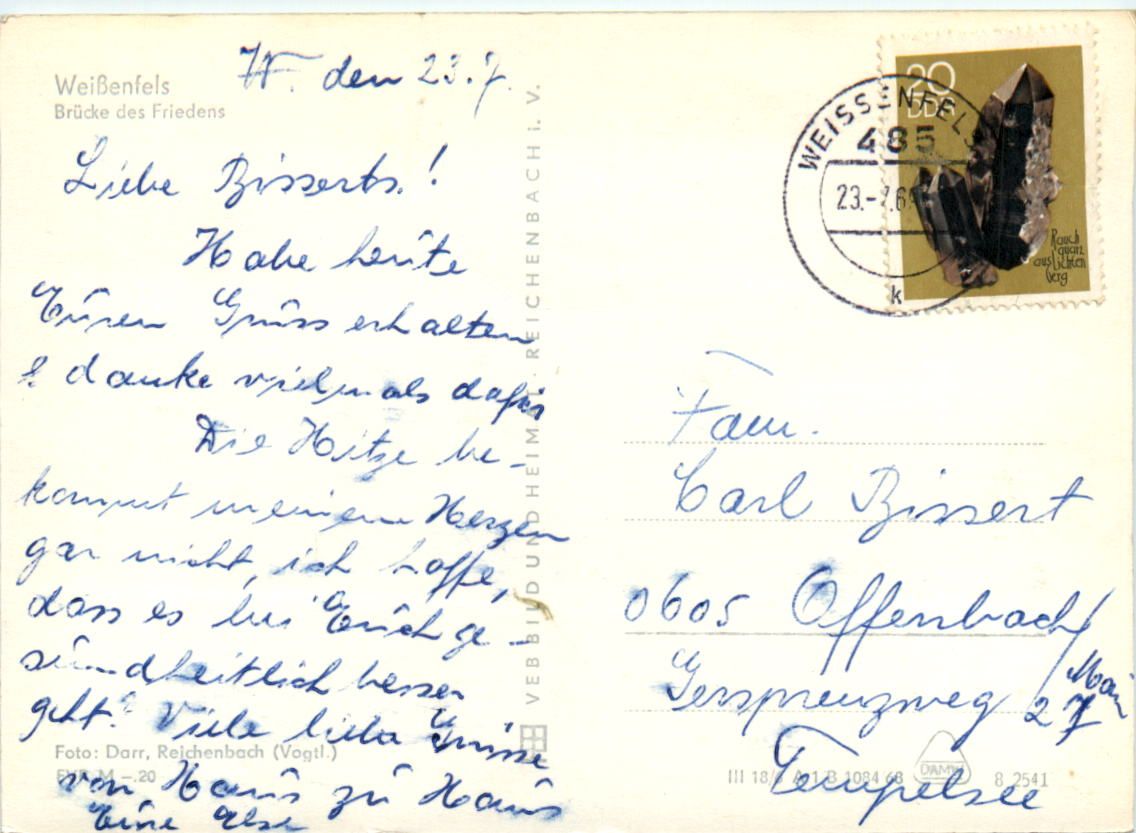 Weißenfels
Brücke des Friedens
W. den 23.7.
Liebe Bisserts!
Habe heute
Euren Gruss erhalten
& danke vielmals dafür
Die Hitze be-
kommt meinem Herzen
gar nicht, ich hoffe,
dass es bei Euch ge-
sundheitlich besser
geht. Viele liebe Grüsse
von Haus zu Haus
Eure Else
Foto: Darr, Reichenbach (Vogtl.)
M -.20
VEB BILD UND HEIMAT REICHENBACH i. V.
20
DDR
Rauch
quarz
aus Lichten
berg
WEISSENFELS
485
23.-7.69
k
Fam.
Carl Bissert
0605 Offenbach/
Main
Gersprenzweg 27
Tempelsee
III 18/6 A 1 B 1084 68
DAMW
8 2541